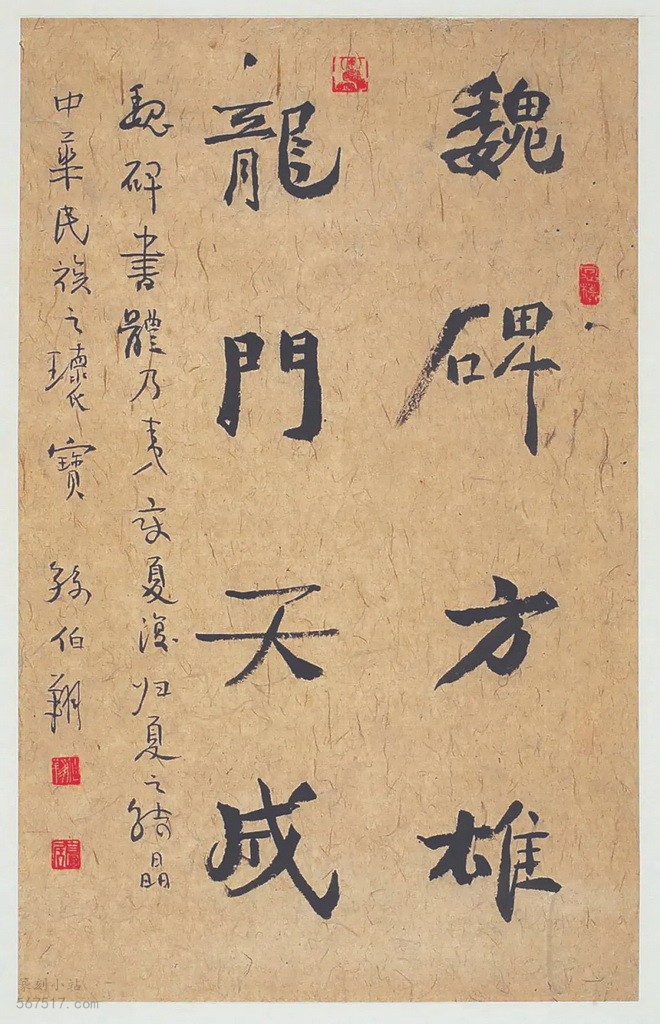 魏碑方雄
龍門天成
魏碑書體乃夷變夏復归夏之結晶
中華民族之瓌寶 孫伯翔
篆刻小站
567517.com